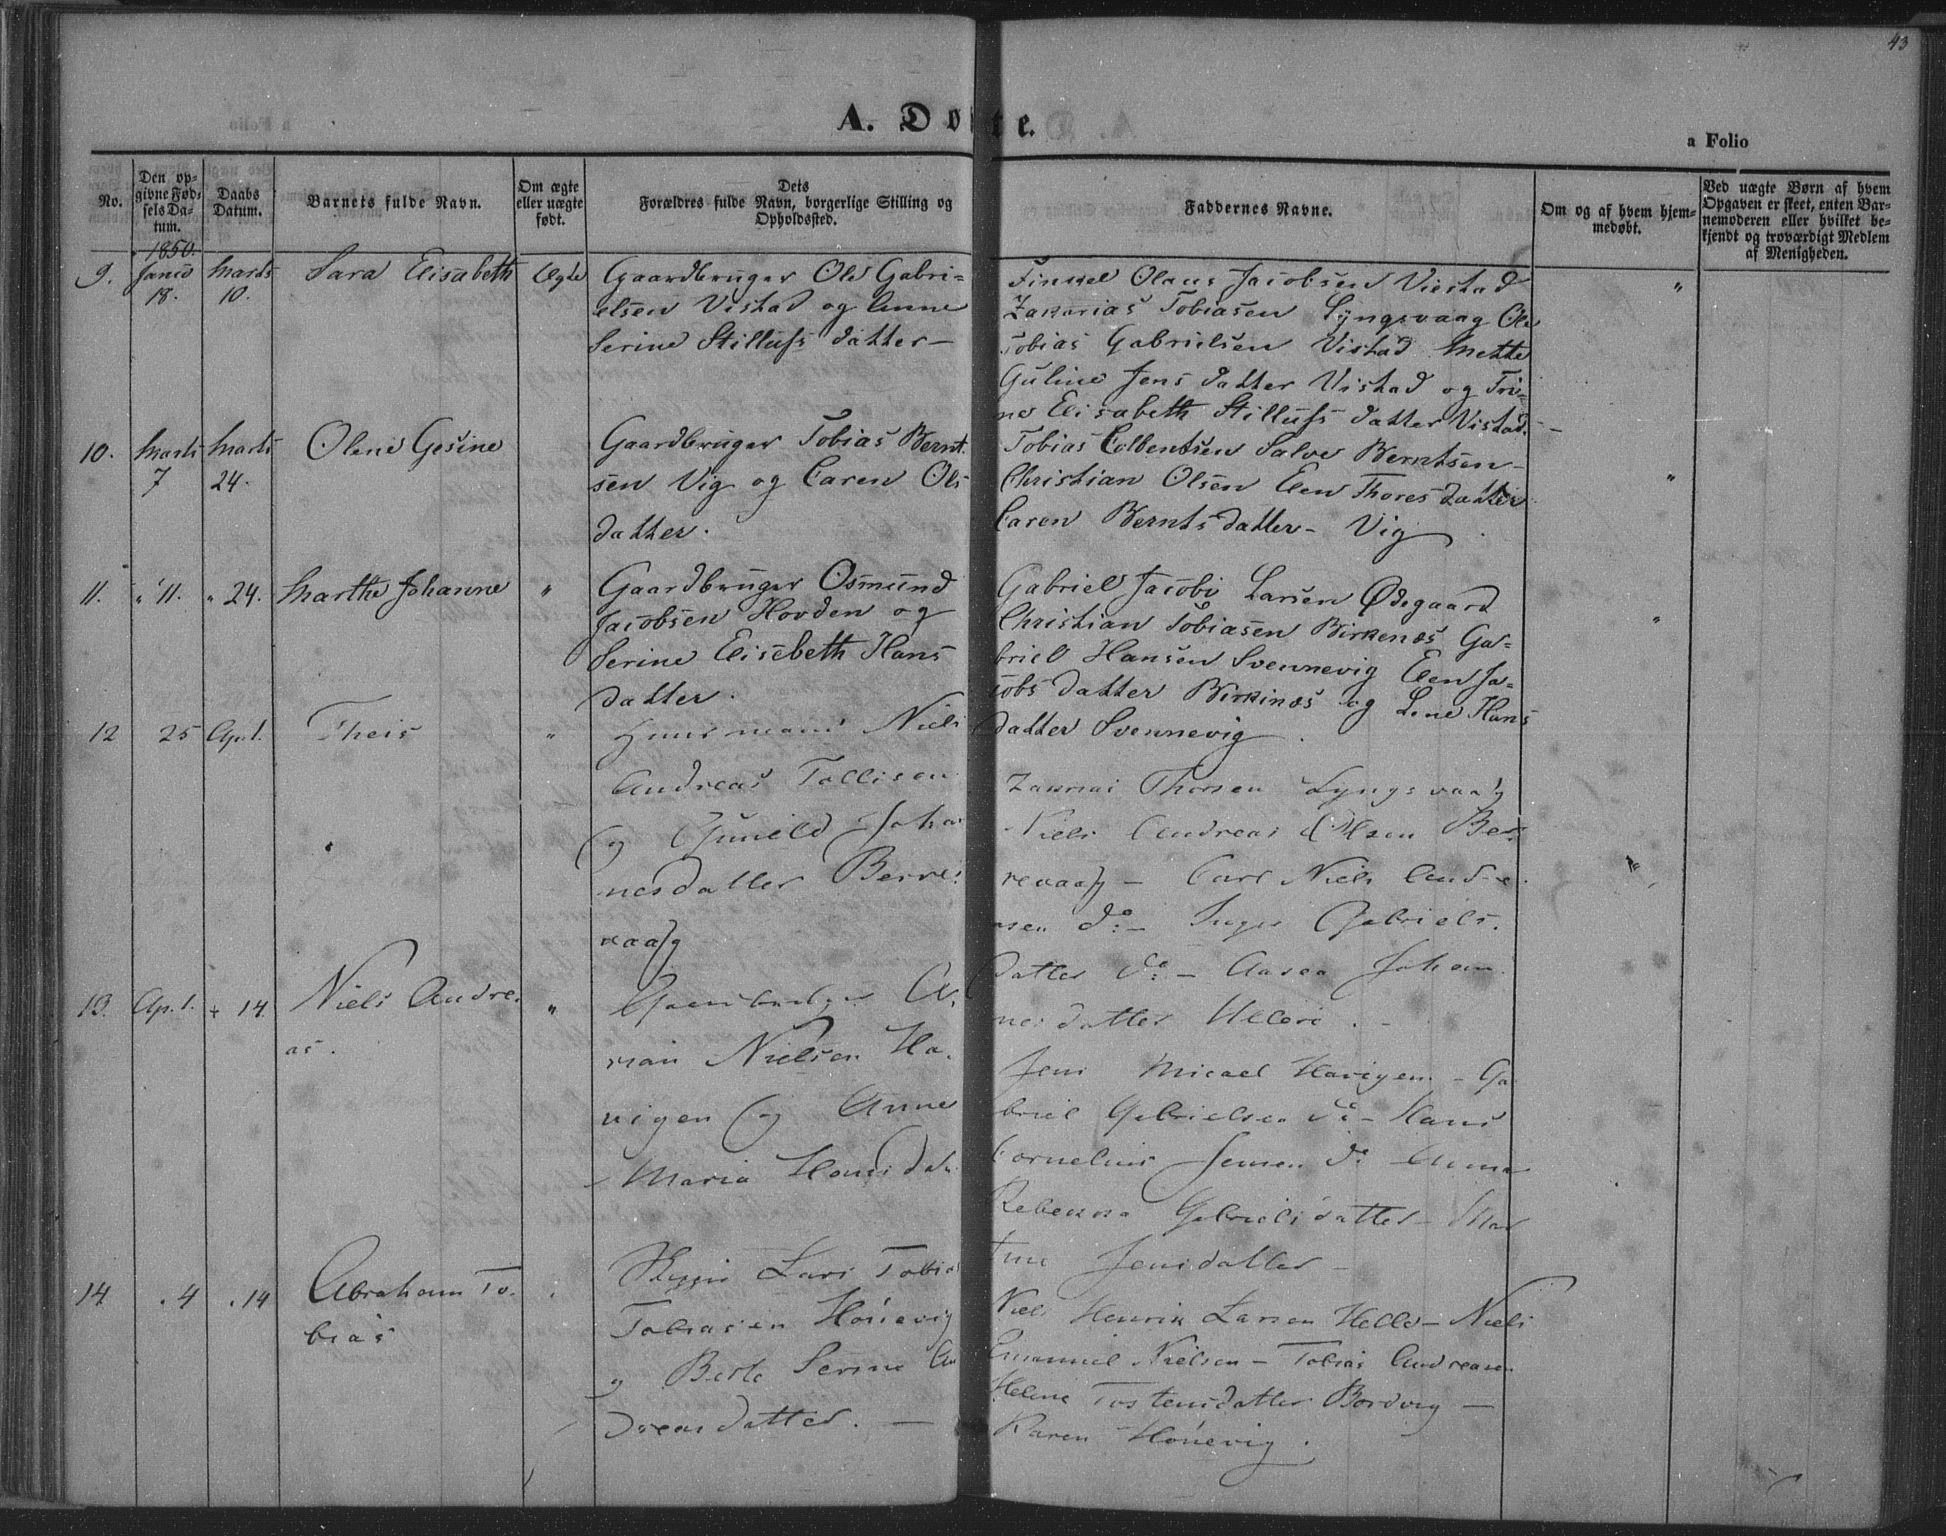 43
A. Døbte.
a Folio
No.
Den op-
givne Fød-
sels Da-
tum.
Daabs
Datum.
Barnets fulde Navn.
Om ægte
eller uægte
født.
Dets
Forældres fulde Navn, borgerlige Stilling og
Opholdssted.
Faddernes Navne.
Om og af hvem hjem-
medøbt.
Ved uægte Børn af hvem
Opgaven er skeet, enten Bar-
nemoderen eller hvilket be-
kjendt og troværdigt Medlem
af Menigheden.
1850.
9.
18.
Marts
10.
Sara Elisabeth
Ægte
Gaardbruger Ole Gabri=
elsen Vistad og Anne
Serine Stillufs datter —
Olaus Jacobsen Viestad
Zakarias Tobiasen Lyngsvaag Ole
Tobias Gabrielsen Vistad Mette
Guline Jens datter Vistad og Tri=
ne Elisabeth Stillufs datter Vistad. —
"
10.
Marts
7
Marts
24.
Olene Gesine
Gaardbruger Tobias Bernt
sen Vig og Caren Ols
datter.
Tobias Salve Berntsen
Christian Olsen Elen Thores datter
Caren Bernts datter – Vig.
"
11.
" 11.
" 24.
Marthe Johanne
"
Gaardbruger Osmund
Jacobsen Hovden og
Serine Elisebeth Hans
datter.
Gabriel Jacobi Larsen Ødegaard
Christian Tobiasen Birkenæs Ga=
briel Hansen Svennevig Elen Ja=
cobs datter Birkinæs og Lene Hans
datter Svennevig.
"
12
25
Apl.
Theis
"
Huusmand Niels
Andreas Tallisen
og Gunild Johan
nesdatter Berre:
vaag
Thorsen Lyngsvaag
Niels Andreas Olsen Ber
revaag – Carl Niels Andre
asen do – Inger Gabriels.
datter do – Aasea Johan
nesdatter Helleri. –
"
13.
Apl.
" 14.
Niels Andre.
as.
"
Nielsen Ha.
vigen og Anne
Maria Hansdat.
Jens Micael Havigen – Ga
briel Gabrielsen do – Hans
Cornelius Jensen do Anna
Rebekka Gabrielsdatter – Mar
tine Jensdatter –
14
. 4
. 14
Abraham To.
bias
Lars Tobias
Tobiasen Hønevig
og Berte Serine An
dreasdatter. —
Niels Henrik Larsen Helle – Niels
Emanuel Nielsen – Tobias Andreasen
Helene Tostensdatter Bordvig —
Karen Hønevig.